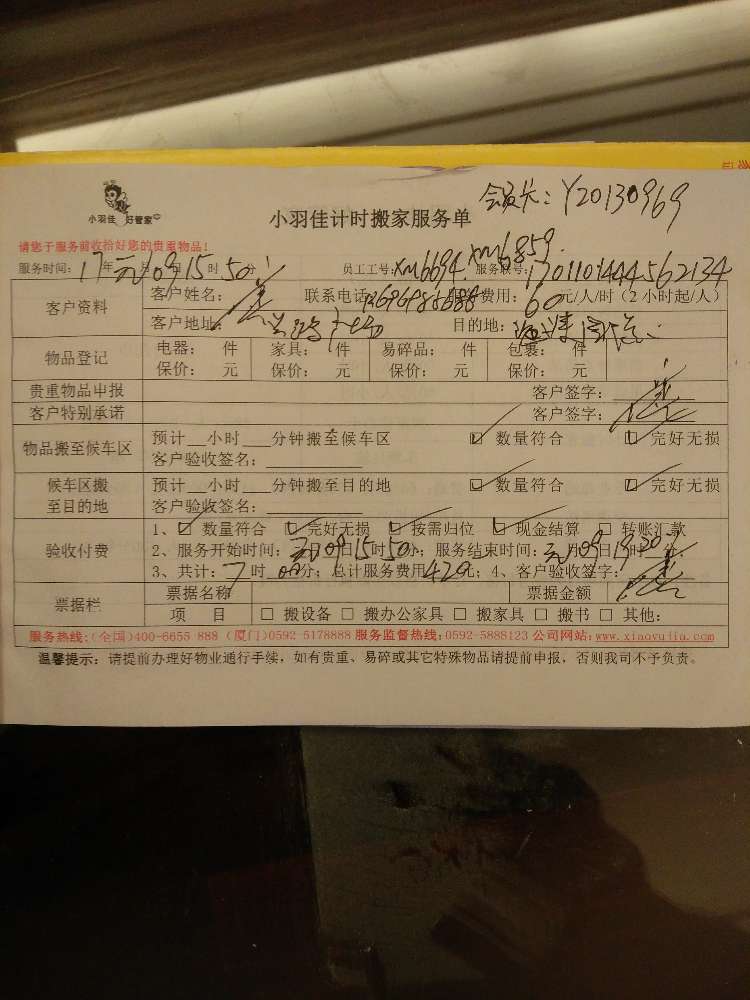 Y20130969
小羽佳 好管家
小羽佳计时搬家服务单
请您于服务前收拾好您的贵重物品！
服务时间：17年元月09日15时50分 员工工号：xm6694 xm6859 服务取号：
客户资料 客户姓名： 联系电话 费用：60元/人/时（2小时起/人）
客户地址： 目的地：
物品登记 电器： 件 家具： 件 易碎品： 件 包裹： 件
保价： 元 保价： 元 保价： 元 保价： 元
贵重物品申报 客户签字：
客户特别承诺 客户签字：
物品搬至候车区 预计__小时___分钟搬至候车区 □ 数量符合 □ 完好无损
客户验收签名：
候车区搬至目的地 预计__小时___分钟搬至目的地 □ 数量符合 □ 完好无损
客户验收签名：
验收付费 1、□ 数量符合 □ 完好无损 □ 按需归位 □ 现金结算 □ 转账汇款
2、服务开始时间：元月09日15时50分；服务结束时间：元月09日19时20分；
3、共计：7时 分；总计服务费用420元；4、客户验收签字：
票据栏 票据名称 票据金额
项 目 □ 搬设备 □ 搬办公家具 □ 搬家具 □ 搬书 □ 其他：
服务热线：(全国)400-6655 888 (厦门)0592-5178888 服务监督热线：0592-5888123 公司网站：www.xiaoyujia.com
温馨提示：请提前办理好物业通行手续，如有贵重、易碎或其它特殊物品请提前申报，否则我司不予负责。